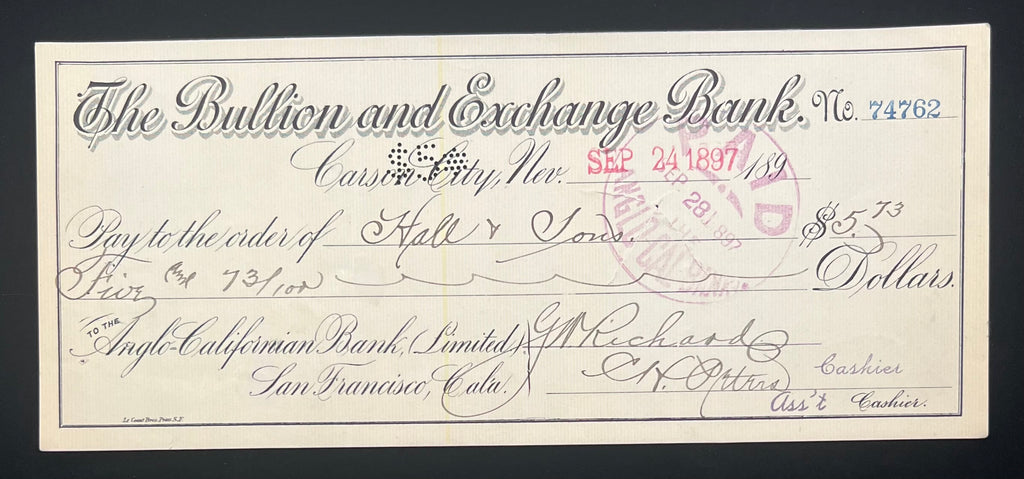 The Bullion and Exchange Bank. No. 74762
Carson City, Nev. SEP 24 1897 189
$5
PAID
SEP 28 1897
THE
ANGLO CALIFORNIAN BANK
Pay to the order of Hall & Sons. $5.73
Five and 73/100 Dollars.
TO THE
Anglo-Californian Bank, (Limited) G W Richard
San Francisco, Cala. C.H. Peters Cashier
Ass't Cashier.
Le Count Bros. Print S.F.